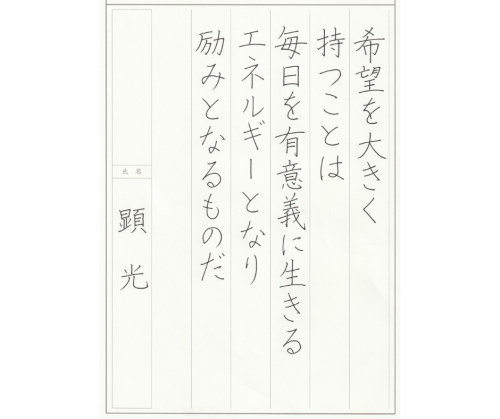 希望を大きく
持つことは
毎日を有意義に生きる
エネルギーとなり
励みとなるものだ
氏名
顕光